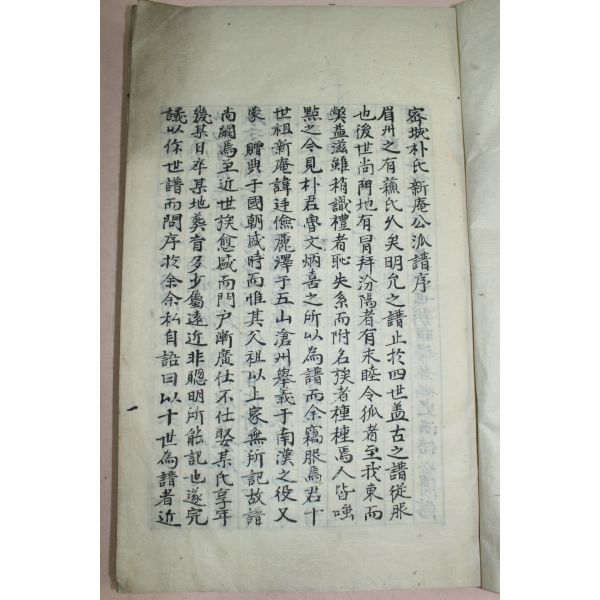 密城朴氏新庵公派譜序
眉州之有蘓氏久矣明允之譜止於四世盖古之譜從服
也後世尚門地有冒拜汾陽者有末睦令狐者至我東而
獘益滋雖稍識禮者恥失系而附名族者種種焉人皆嗤
點之今見朴君魯文炳喜之所以為譜而余竊服焉君十
世祖新庵諱廷儉麗澤于五山滄州舉義于南漢之役又
蒙贈典于國朝盛時而惟其父祖以上家無所記故譜
尚闕焉至近世族愈盛而門户漸廣仕不仕娶某氏享年
幾某日卒某地葬育多少屬遠近非聰明所能記也遂完
議以作世譜而問序於余余私自語曰以十世為譜者近